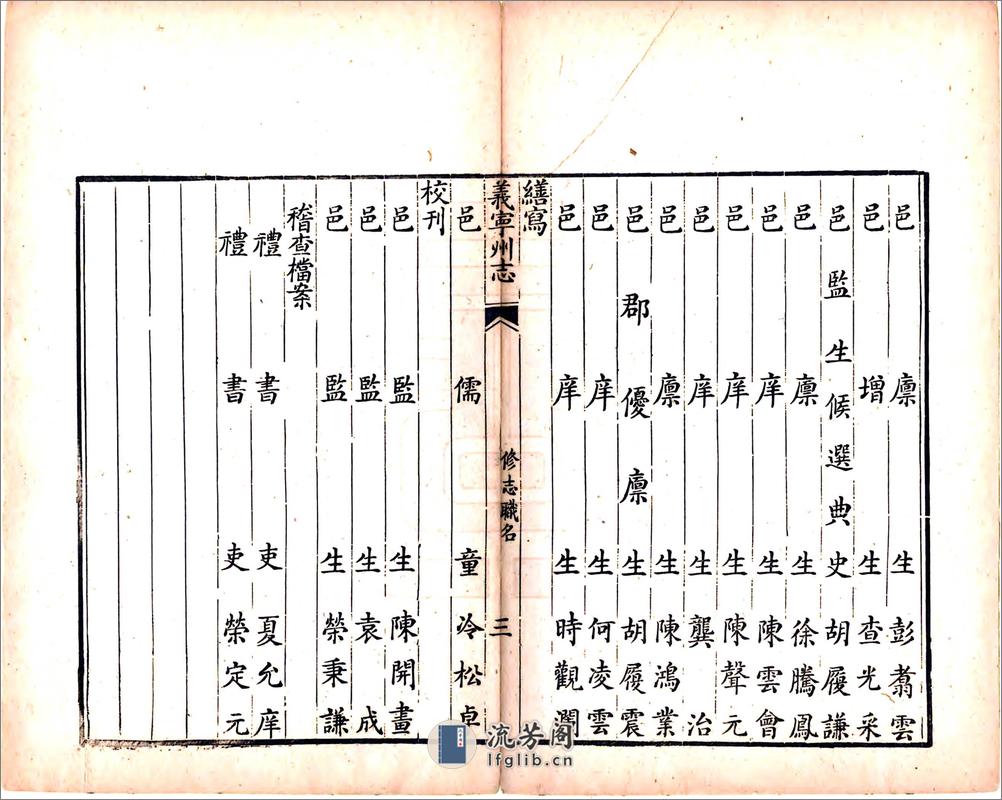 邑廪生彭翥雲
邑增生查光采
邑監生候選典史胡履謙
邑廪生徐騰鳳
邑庠生陳雲會
邑庠生陳聲元
邑庠生龔治
邑廪生陳鴻業
邑郡優廪生胡履震
邑庠生何凌雲
邑庠生時觀瀾
繕寫
義寧州志
修志職名
三
邑儒童冷松卓
校刊
邑監生陳開畫
邑監生袁成
邑監生榮秉謙
稽查檔案
禮書吏夏允庠
禮書吏榮定元
流芳阁
lfglib.cn